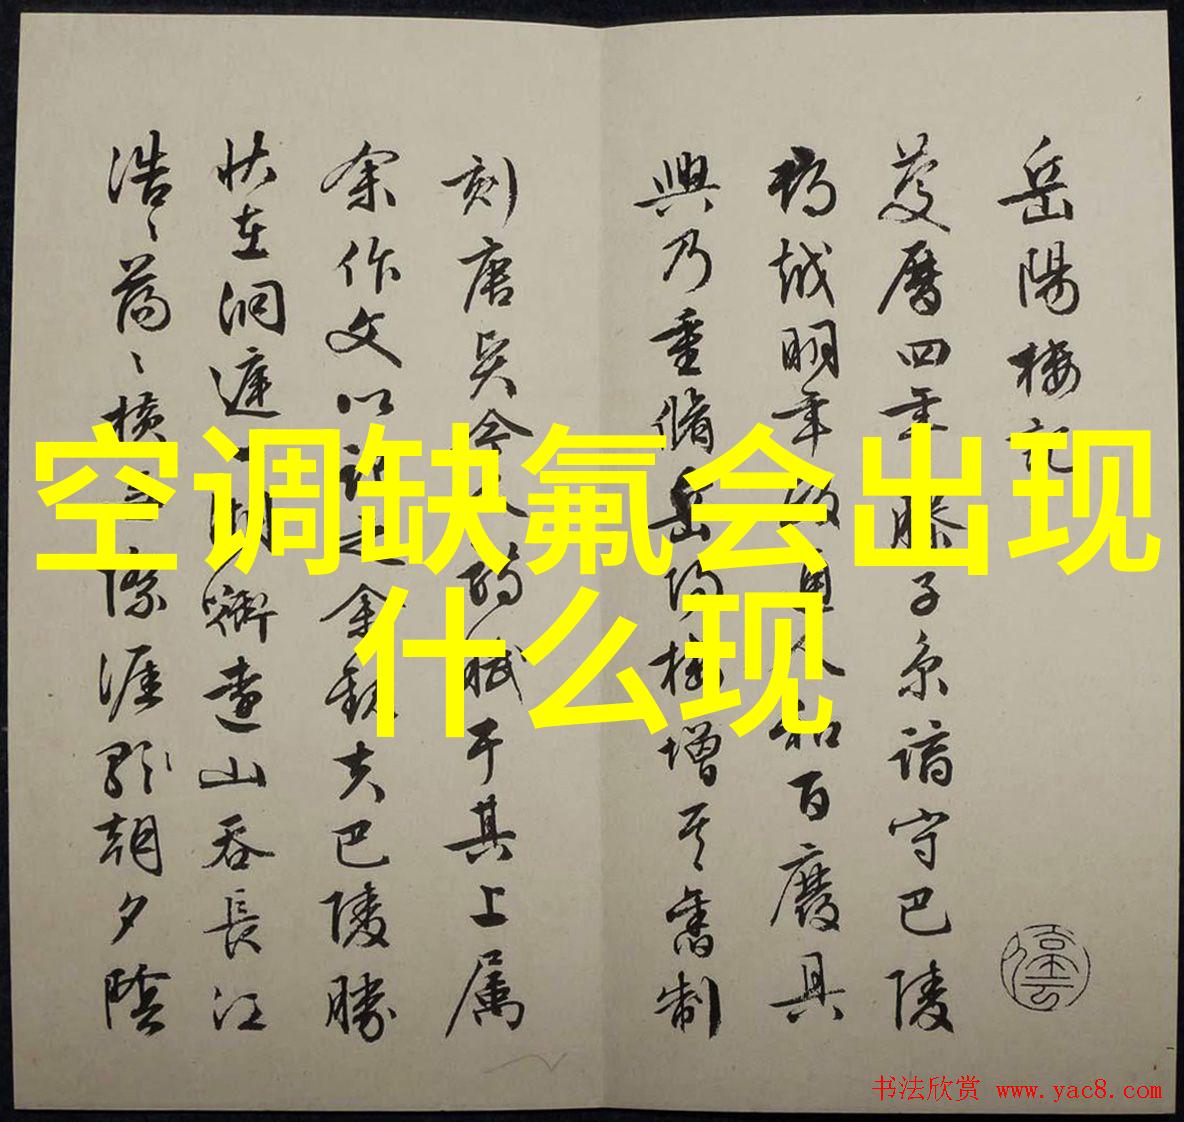 空调缺氟会出现
什么现
岳陽樓記
慶曆四年 滕子京謫守巴陵
越明年 百廢具
興乃重脩岳陽樓增其舊制
刻唐 于其上屬
余作文以記之余觀夫巴陵勝
狀在洞庭一湖銜遠山吞長江
浩〻蕩〻橫無際涯 朝夕陰
书法欣赏 www.yac8.com